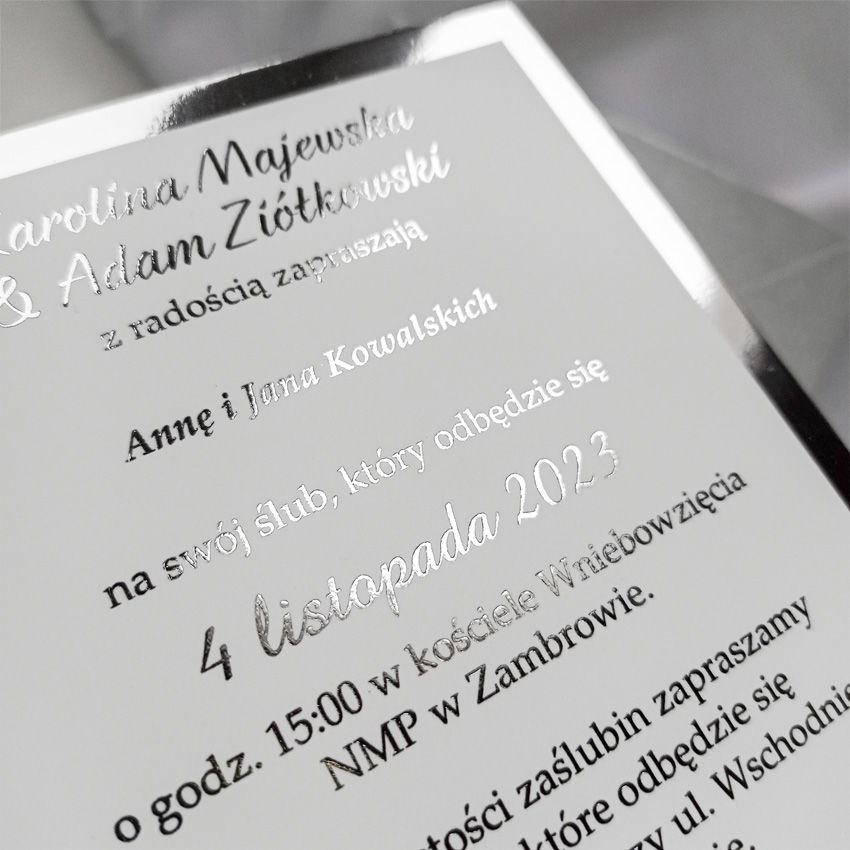 Karolina Majewska
& Adam Ziółkowski
z radością zapraszają
Annę i Jana Kowalskich
na swój ślub, który odbędzie się
4 listopada 2023
o godz. 15:00 w kościele Wniebowzięcia
NMP w Zambrowie.
zaślubin zapraszamy
które odbędzie się
ul.